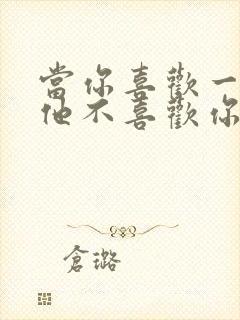 當你喜歡一
他不喜歡你
倉璐